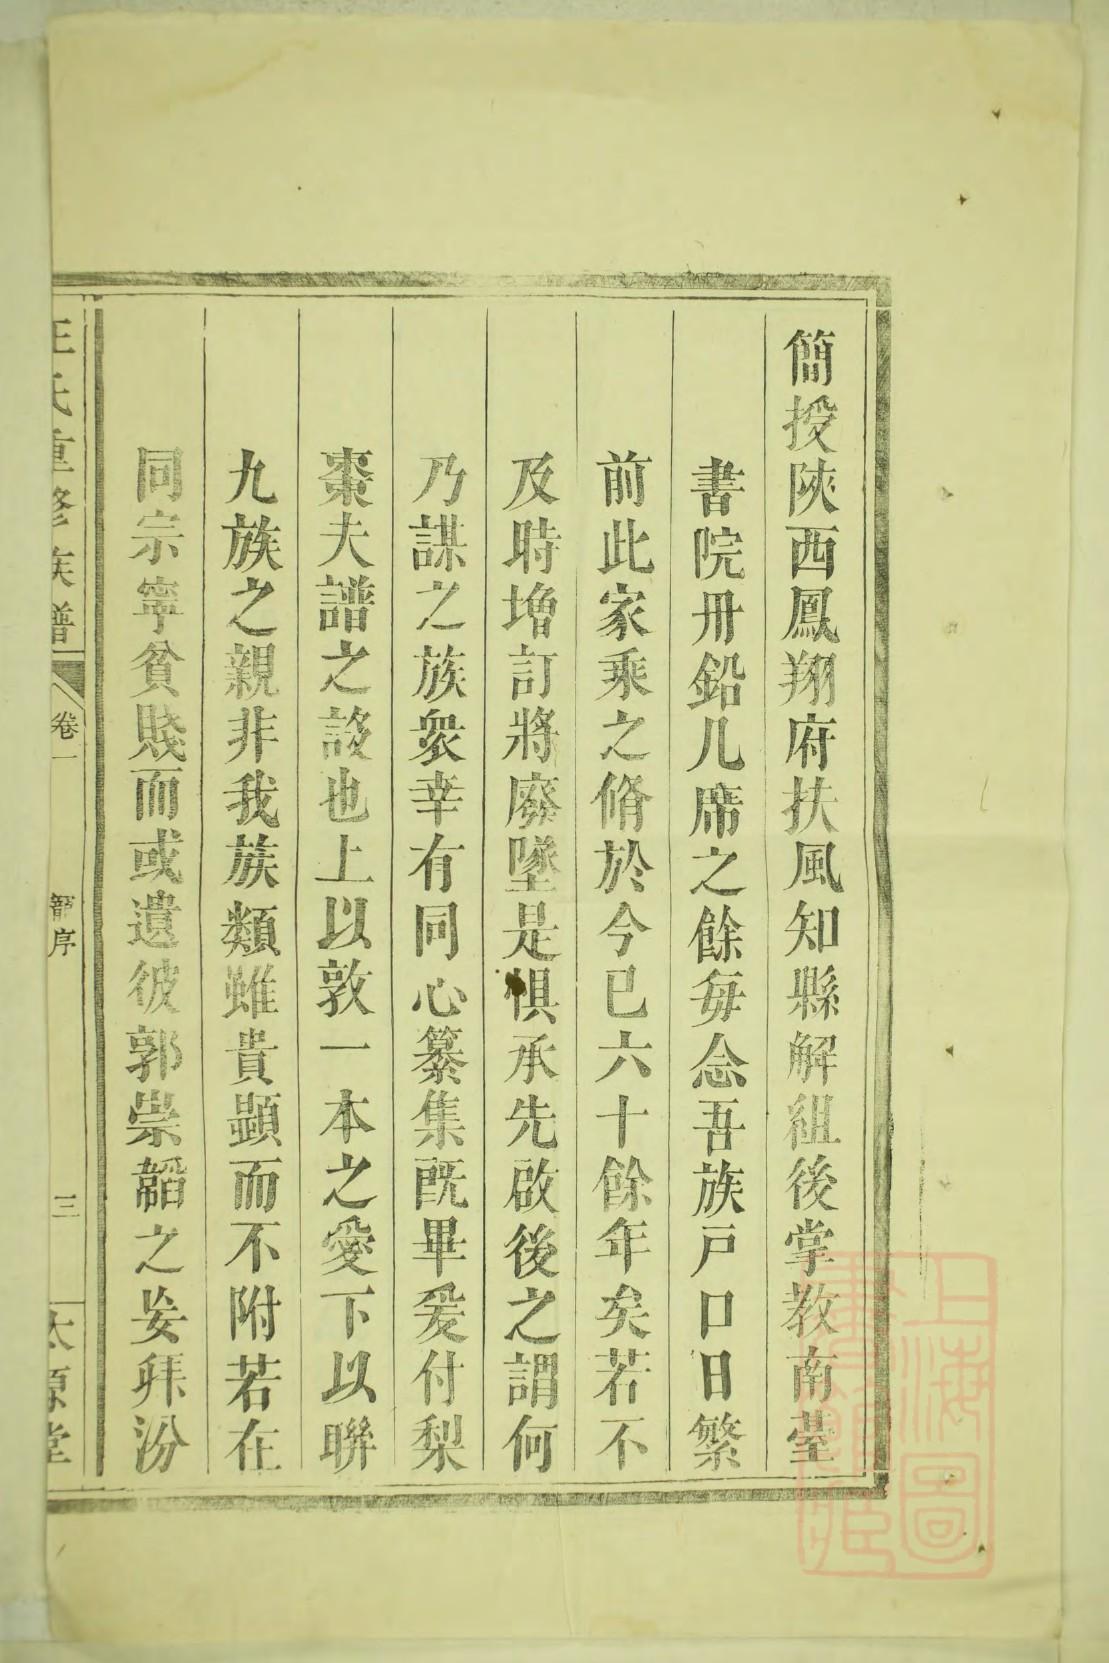 簡授陝西鳳翔府扶風知縣解組後掌教南臺
書院丹鉛几席之餘每念吾族戸口日繁
前此家乘之脩於今已六十餘年矣若不
及時增訂將廢墜是惧承先啟後之謂何
乃謀之族衆幸有同心纂集旣畢爰付梨
棗夫譜之設也上以敦一本之愛下以聯
九族之親非我族類雖貴顯而不附若在
同宗寧貧賤而或遺彼郭崇韜之妄拜汾
王氏重修族譜
卷一
序
三
太原堂
上海圖書館藏